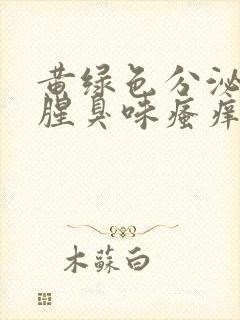 黄绿色分泌
腥臭味瘙痒
木蘇白